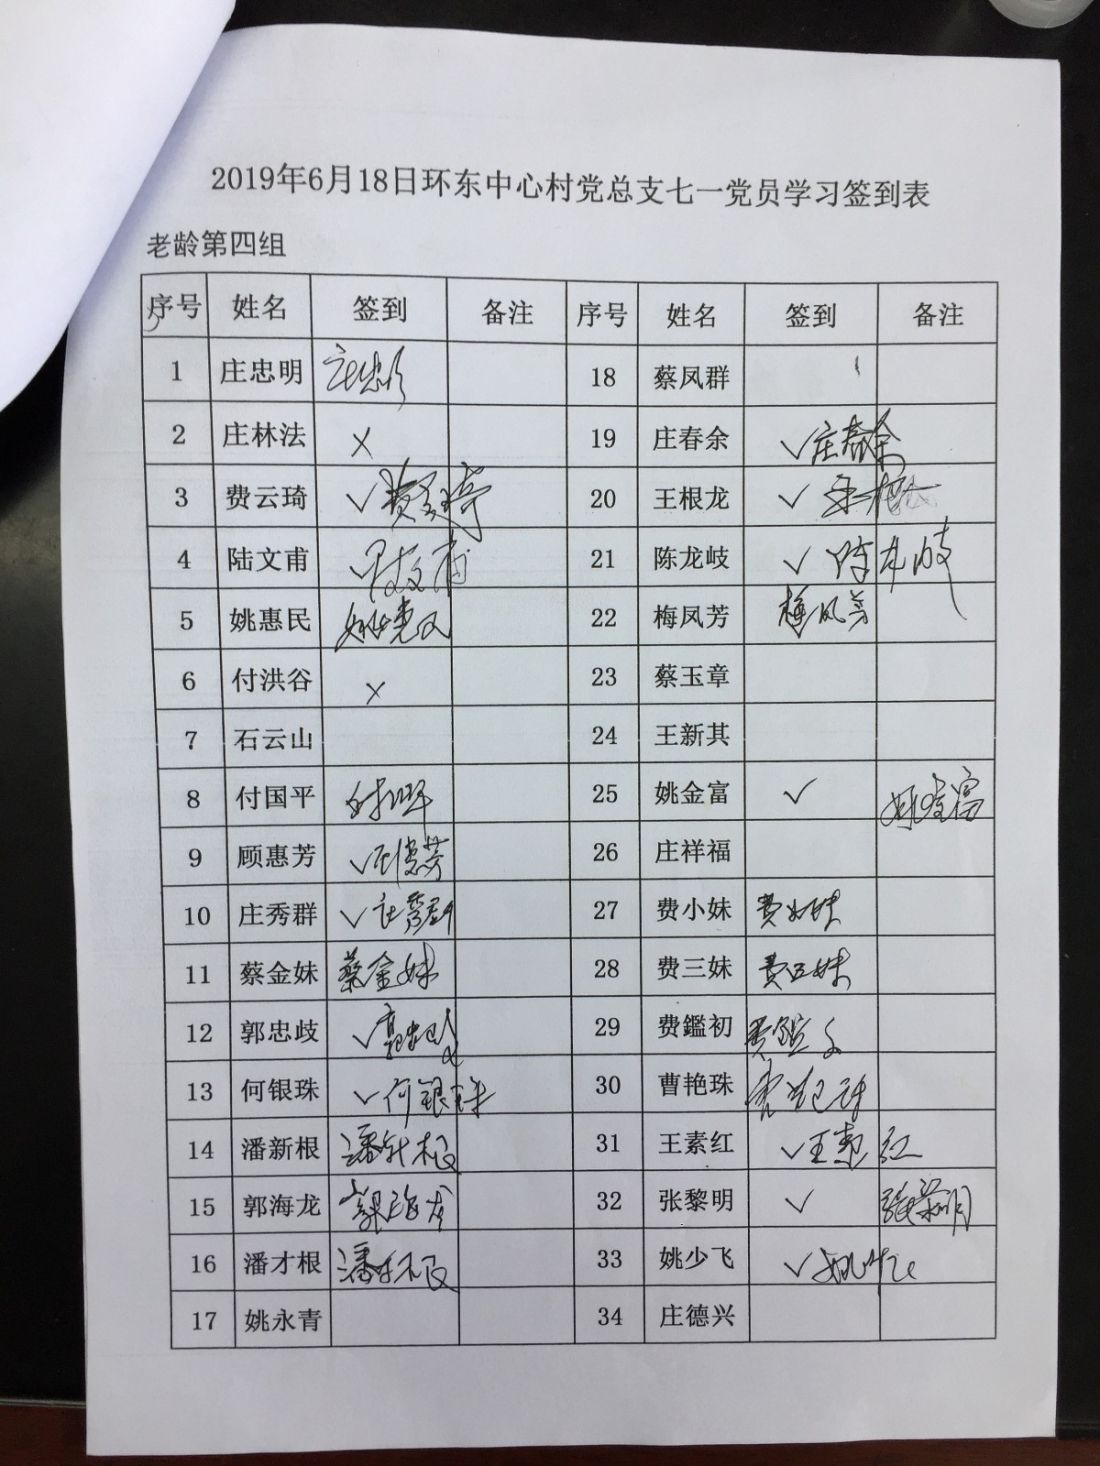 2019年6月18日环东中心村党总支七一党员学习签到表
老龄第四组
序号 姓名 签到 备注 序号 姓名 签到 备注
1 庄忠明 庄忠明 18 蔡凤群
2 庄林法 × 19 庄春余 ✓庄春余
3 费云琦 ✓费云琦 20 王根龙 ✓王根龙
4 陆文甫 ✓陆文甫 21 陈龙岐 ✓陈龙岐
5 姚惠民 姚惠民 22 梅凤芳 梅凤芳
6 付洪谷 × 23 蔡玉章
7 石云山 24 王新其
8 付国平 付国平 25 姚金富 ✓ 姚金富
9 顾惠芳 ✓顾惠芳 26 庄祥福
10 庄秀群 ✓庄秀群 27 费小妹 费小妹
11 蔡金妹 蔡金妹 28 费三妹 费三妹
12 郭忠歧 ✓郭忠歧 29 费鑑初 费鑑初
13 何银珠 ✓何银珠 30 曹艳珠 曹艳珠
14 潘新根 潘新根 31 王素红 ✓王素红
15 郭海龙 郭海龙 32 张黎明 ✓ 张黎明
16 潘才根 潘才根 33 姚少飞 ✓姚少飞
17 姚永青 34 庄德兴